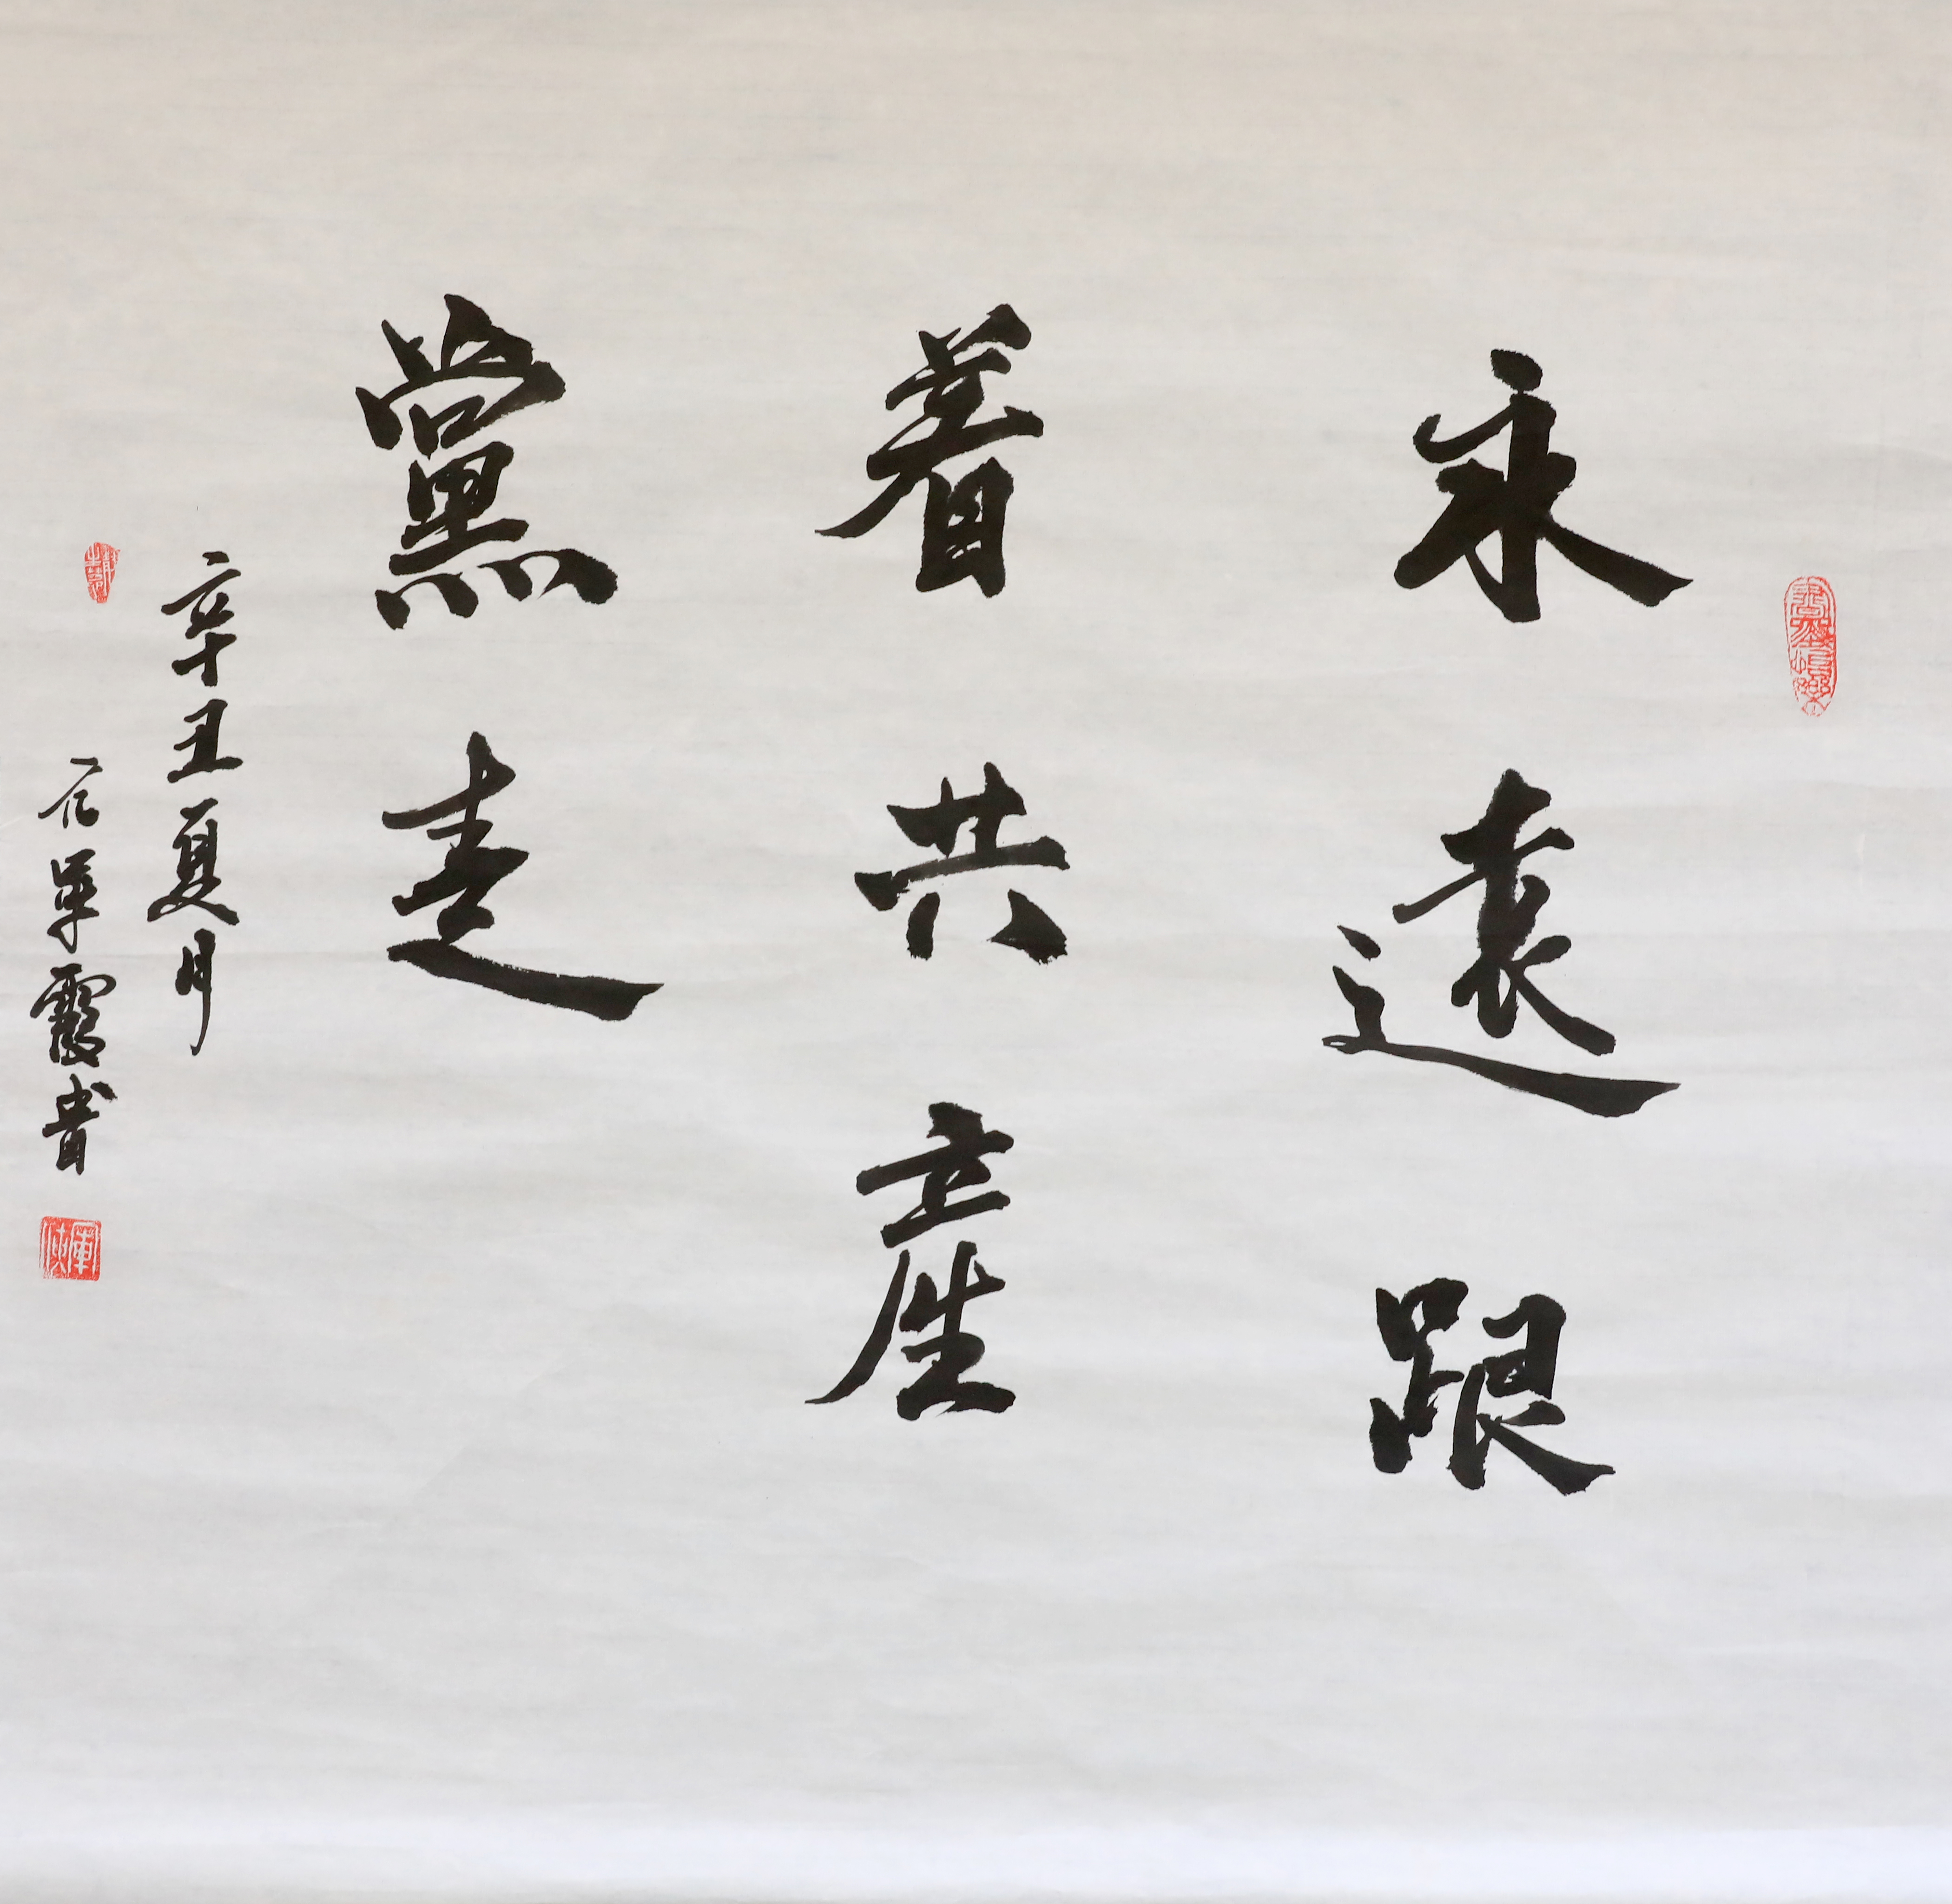 永遠跟
着共產
黨走
辛丑夏月
霞書